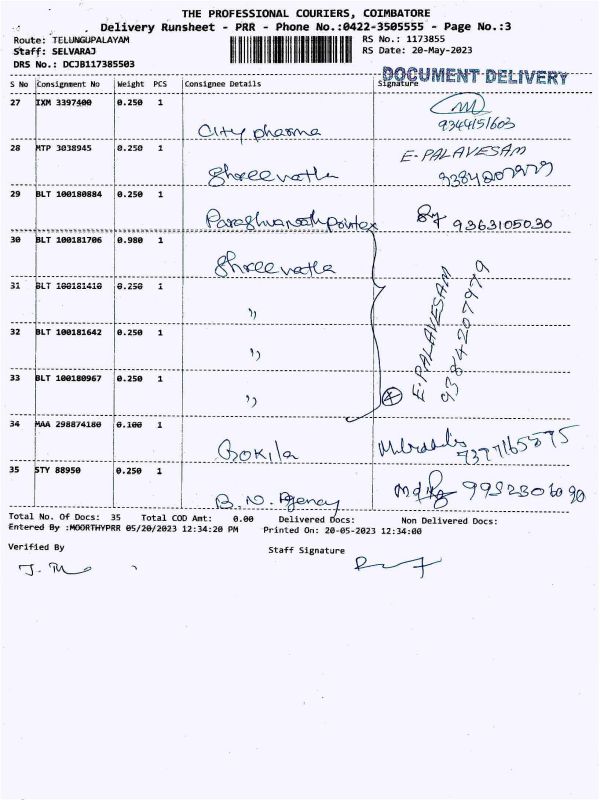 THE PROFESSIONAL COURIERS, COIMBATORE
Delivery Runsheet - PRR - Phone No.:0422-3505555 - Page No.:3
Route: TELUNGUPALAYAM
RS No.: 1173855
Staff: SELVARAJ
RS Date: 20-May-2023
DRS No.: DCJB117385503
DOCUMENT DELIVERY
S No Consignment No Weight PCS Consignee Details Signature
27 IXM 3397400 0.250 1
City pharma
9344151603
28 MTP 3038945 0.250 1 E. PALAVESAM
Shreevatla
29 BLT 100180884 0.250 1
9363105030
30 BLT 100181706 0.980 1
Shreevatla
31 BLT 100181410 0.250 1
"
32 BLT 100181642 0.250 1
"
33 BLT 100180967 0.250 1
"
4
E. PALAVESAM
9384207979
34 MAA 298874180 0.100 1
Gokila
35 STY 88950 0.250 1
B.N. Agency
Total No. Of Docs: 35 Total COD Amt: 0.00 Delivered Docs: Non Delivered Docs:
Entered By :MOORTHYPRR 05/20/2023 12:34:20 PM Printed On: 20-05-2023 12:34:00
Verified By
Staff Signature